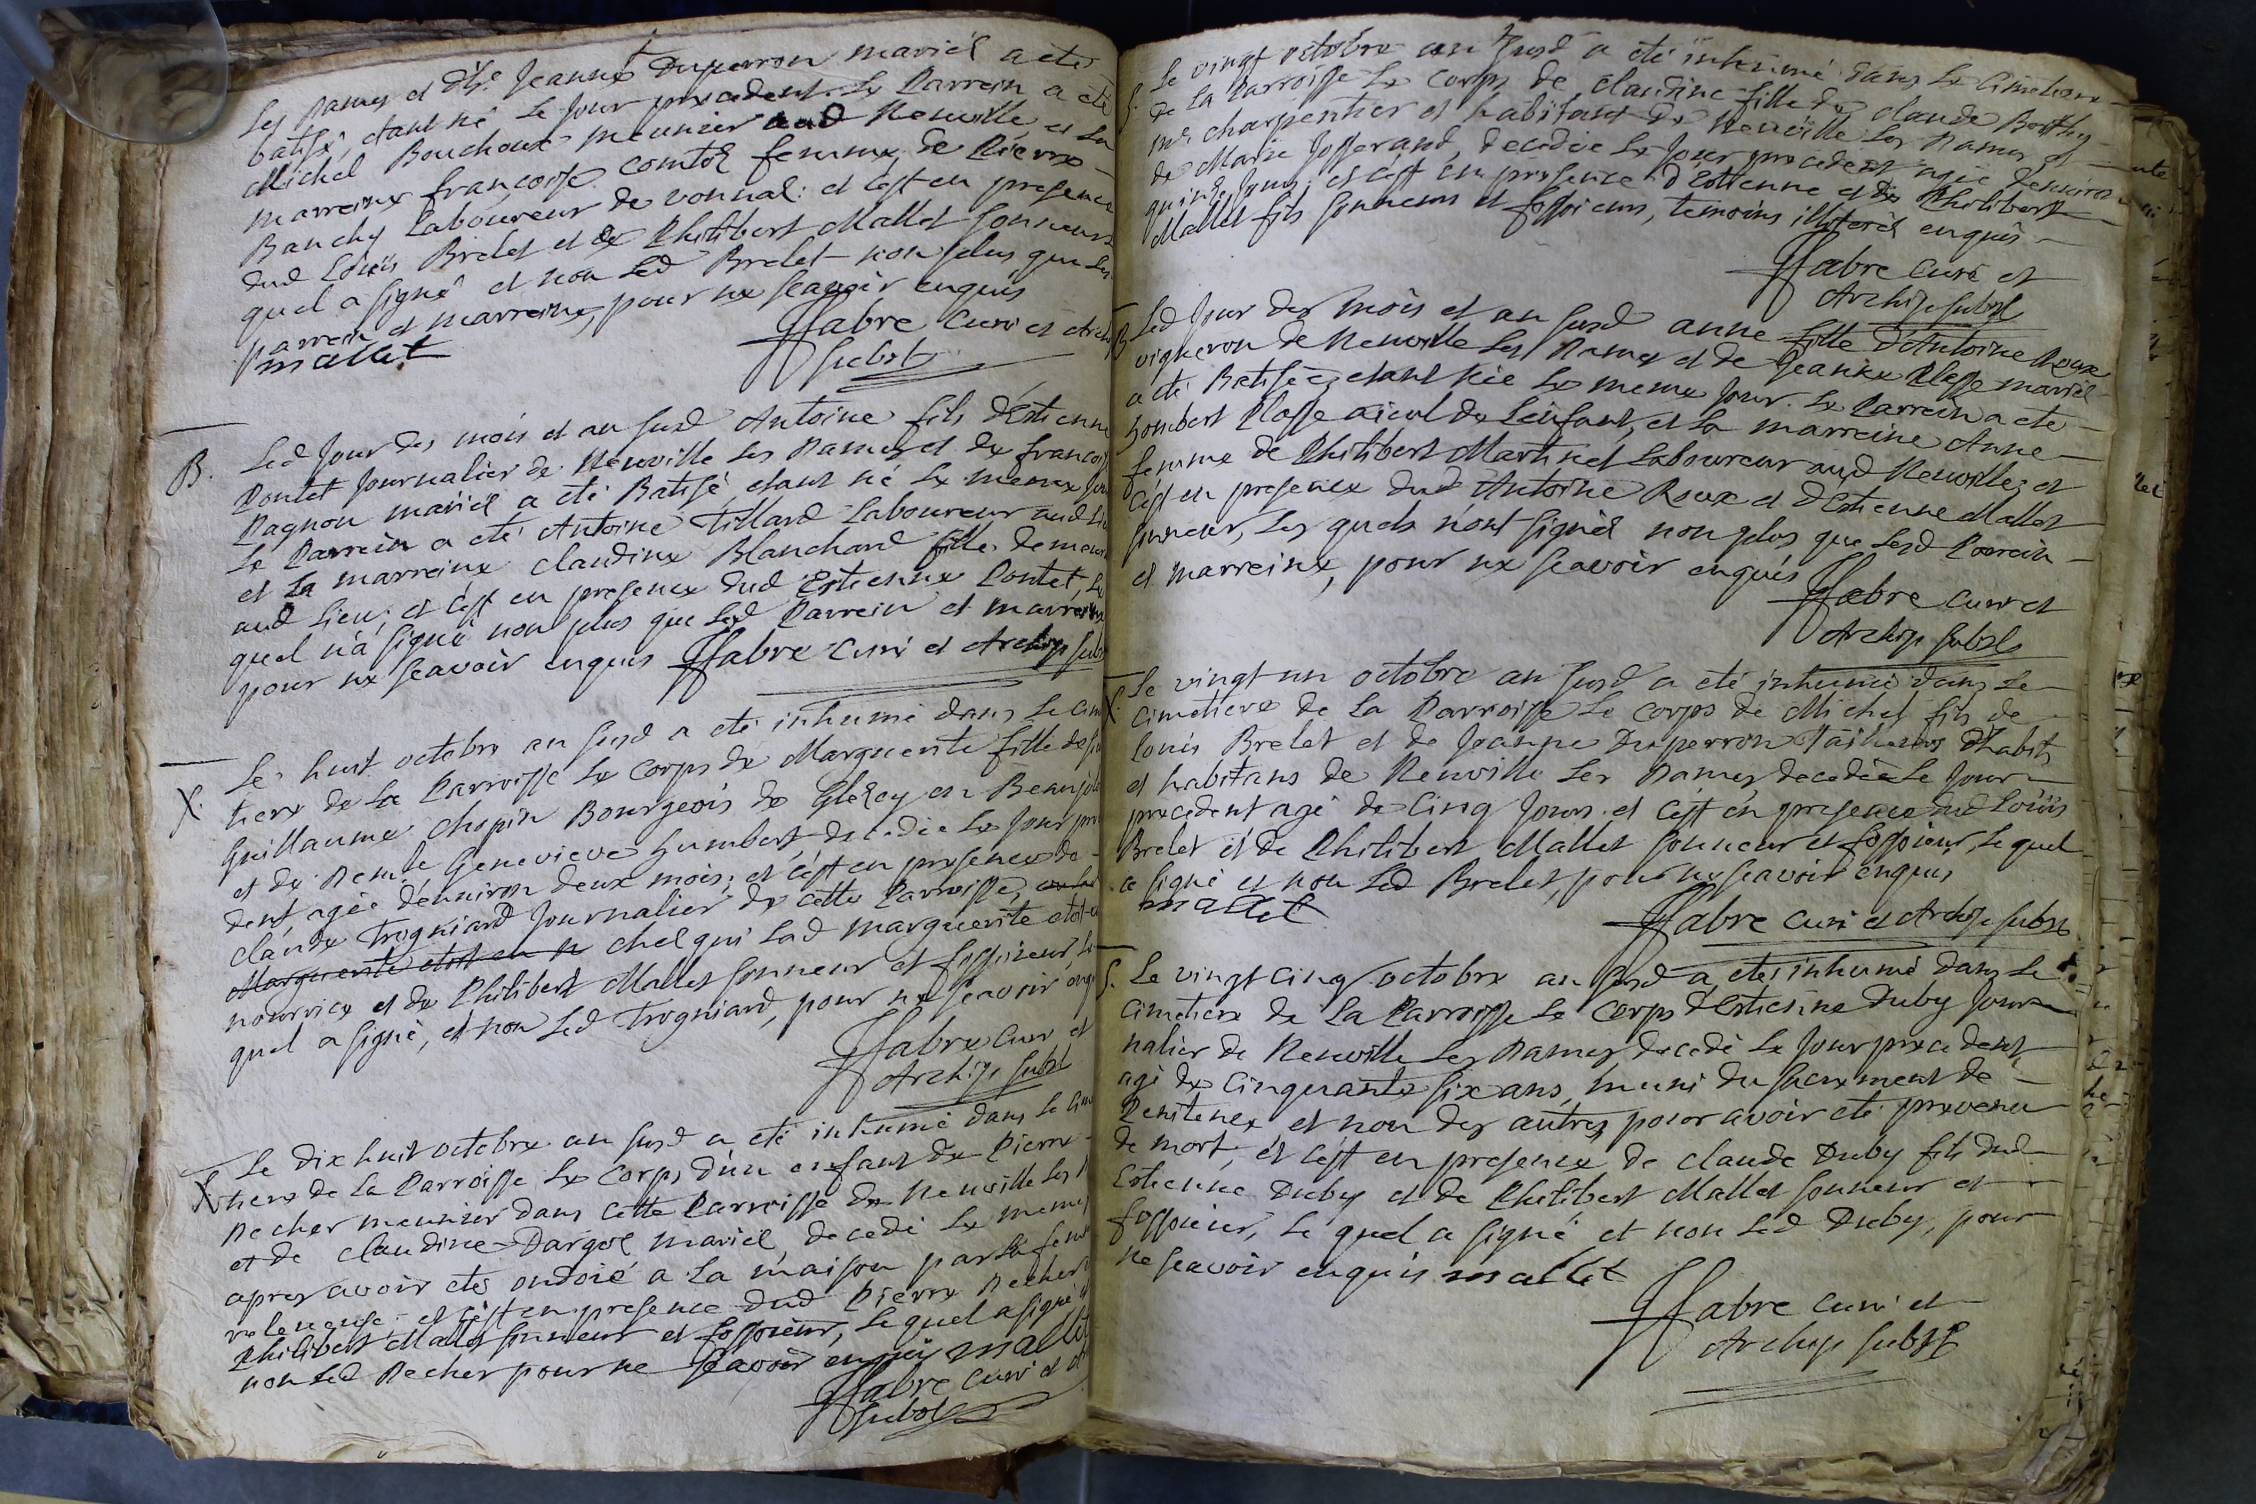 Les Dames et d'hle Jeanne Duperron mariés a eté
batisé, etant né le jour precedent. Le Parrein a eté
Michel Bouchoux meunier aud Neuville et la
marreine françoise comtet femme de Pierre
Bauchy Laboureur de vonnal: et c'est en presence
dud Loüis Brelet et de Philibert Mallet sonneur
quel a signé et non led Brelet non plus que les
parrein et marreine, pour ne sçavoir enquis
mallet
ffabre curé et Archip
subst
B. Led Jour des mois et an susd Antoine fils d'Estienne
Pontet Journalier de Neuville les Dames et de francoise
Pagnon mariés a eté Batisé etant né le meme jour
Le Parrein a eté Antoine Tillard Laboureur aud lieu
et la marreine claudine Blanchard fille demeurant
aud Lieu; et c'est en presence dud Estienne Pontet, le
quel n'a signé non plus que led Parrein et marreine
pour ne sçavoir enquis ffabre curé et Archip subst
X. Le huit octobre an susd a eté inhumé dans le cime
tiere de la Parroisse le corps de Marguerite fille de
Guillaume Chopin Bourgeois de en Beaujolois
et de Demlle Genevieve humbert, decedée le jour prece
dent agée d'environ deux mois; et c'est en presence de
claude Trogniard Journalier de cette Parroisse,
Marguerite etoit en n chez qui lad marguerite etoit en
nourrice et de Philibert Mallet sonneur et fossoieur, le
quel a signé, et non led Trogniard, pour ne sçavoir enquis
ffabre curé et
Archip subst
X Le dix huit octobre an susd a eté inhumé dans le cime
tiere de la Parroisse le Corps d'un enfant de Pierre
Decher meunier dans cette Parroisse de Neuville les D
et de claudine Dargol mariés, decedé le meme
apres avoir eté ondoié a la maison par la femme
et c'est en presence dud Pierre Decher
Philibert Mallet sonneur et fossoieur, le quel a signé et
non led Decher pour ne sçavoir enquis mallet
ffabre curé et A
subst
S. Le vingt octobre an susd a eté inhumé dans le Cimetiere
de la Parroisse le corps de claudine fille de claude Berthy
me charpentier et habitant de Neuville les Dames et
de Marie Josserand, decedée le jour precedent agée d'environ
quinze jours; et c'est en presence d'Estienne et de Philibert
Mallet fils sonneurs et fossoieurs, temoins illiterés enquis
ffabre curé et
Archip subst
B Led Jour des mois et an susd anne fille d'Antoine Roux
vigneron de Neuville les Dames et de Jeanne Plasse mariés
a eté Batisée, etant née le meme jour. Le Parrein a eté
humbert Plasse aieul de l'enfant, et la marreine Anne
femme de Philibert Martinet Laboureur aud Neuville; et
c'est en presence dud Antoine Roux et d'Estienne Mallet
sonneur, les quels n'ont signés non plus que lesd Parrein
et marreine, pour ne sçavoir enquis
ffabre curé et
Archip subst
X. Le vingt un octobre an susd a eté inhumé dans le
cimetiere de la Parroisse le corps de Michel fils de
Louis Brelet et de Jeanne Duperron Tailleurs d'habits
et habitans de Neuville les Dames decedé le jour
precedent agé de cinq jours. et c'est en presence dud Loüis
Brelet et de Philibert Mallet sonneur et fossoieur, le quel
a signé et non led Brelet, pour ne sçavoir enquis
mallet
ffabre curé et Archip subst
S. Le vingt cinq octobre an susd a eté inhumé dans le
cimetiere de la Parroisse le Corps d'Estienne Duby jour
nalier de Neuville les Dames decedé le jour precedent
agé de cinquante six ans, muni du sacrement de
Penitence et non des autres pour avoir eté prevenu
de mort, et c'est en presence de claude Duby fils dud
Estienne Duby et de Philibert Mallet sonneur et
fossoieur, le quel a signé et non led Duby, pour
ne sçavoir enquis mallet
ffabre curé et
Archip subst